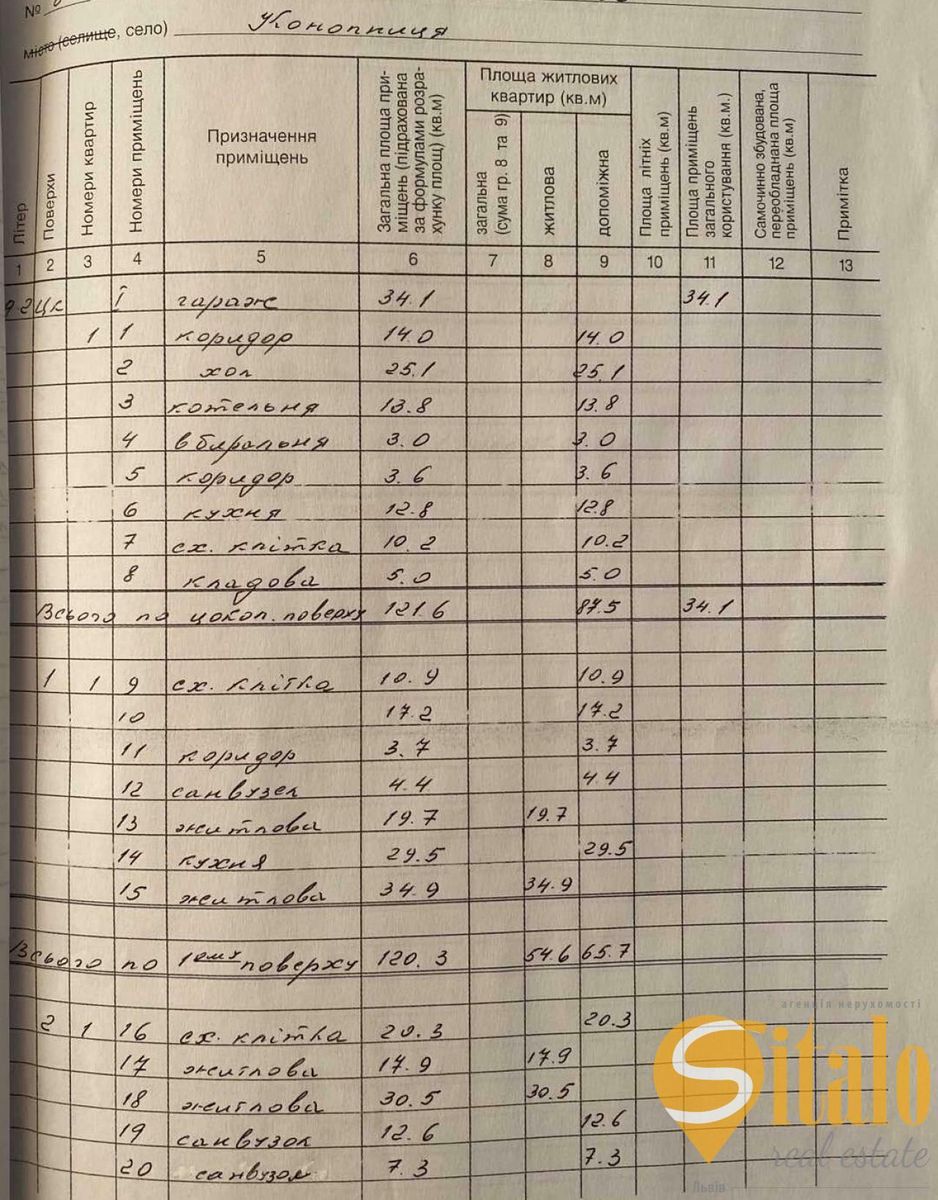 №
місто (селище, село) Конопниця
Літер
Поверхи
Номери квартир
Номери приміщень
Призначення приміщень
Загальна площа приміщень (підрахована за формулами розрахунку площ) (кв.м)
Площа житлових квартир (кв.м)
загальна (сума гр. 8 та 9)
житлова
допоміжна
Площа літніх приміщень (кв.м)
Площа приміщень загального користування (кв.м.)
Самочинно збудована, переобладнана площа приміщень (кв.м)
Примітка
1 2 3 4 5 6 7 8 9 10 11 12 13
цк I гараж 34.1 34.1
1 1 коридор 14.0 14.0
2 хол 25.1 25.1
3 котельня 13.8 13.8
4 вбиральня 3.0 3.0
5 коридор 3.6 3.6
6 кухня 12.8 12.8
7 сх. клітка 10.2 10.2
8 кладова 5.0 5.0
Всього по цокол. поверху 121.6 87.5 34.1
1 1 9 сх. клітка 10.9 10.9
10 17.2 17.2
11 коридор 3.7 3.7
12 санвузел 4.4 4.4
13 житлова 19.7 19.7
14 кухня 29.5 29.5
15 житлова 34.9 34.9
Всього по 1ому поверху 120.3 54.6 65.7
2 1 16 сх. клітка 20.3 20.3
17 житлова 17.9 17.9
18 житлова 30.5 30.5
19 санвузол 12.6 12.6
20 санвузол 7.3 7.3
агенція нерухомості
Sitalo
real estate
Львів